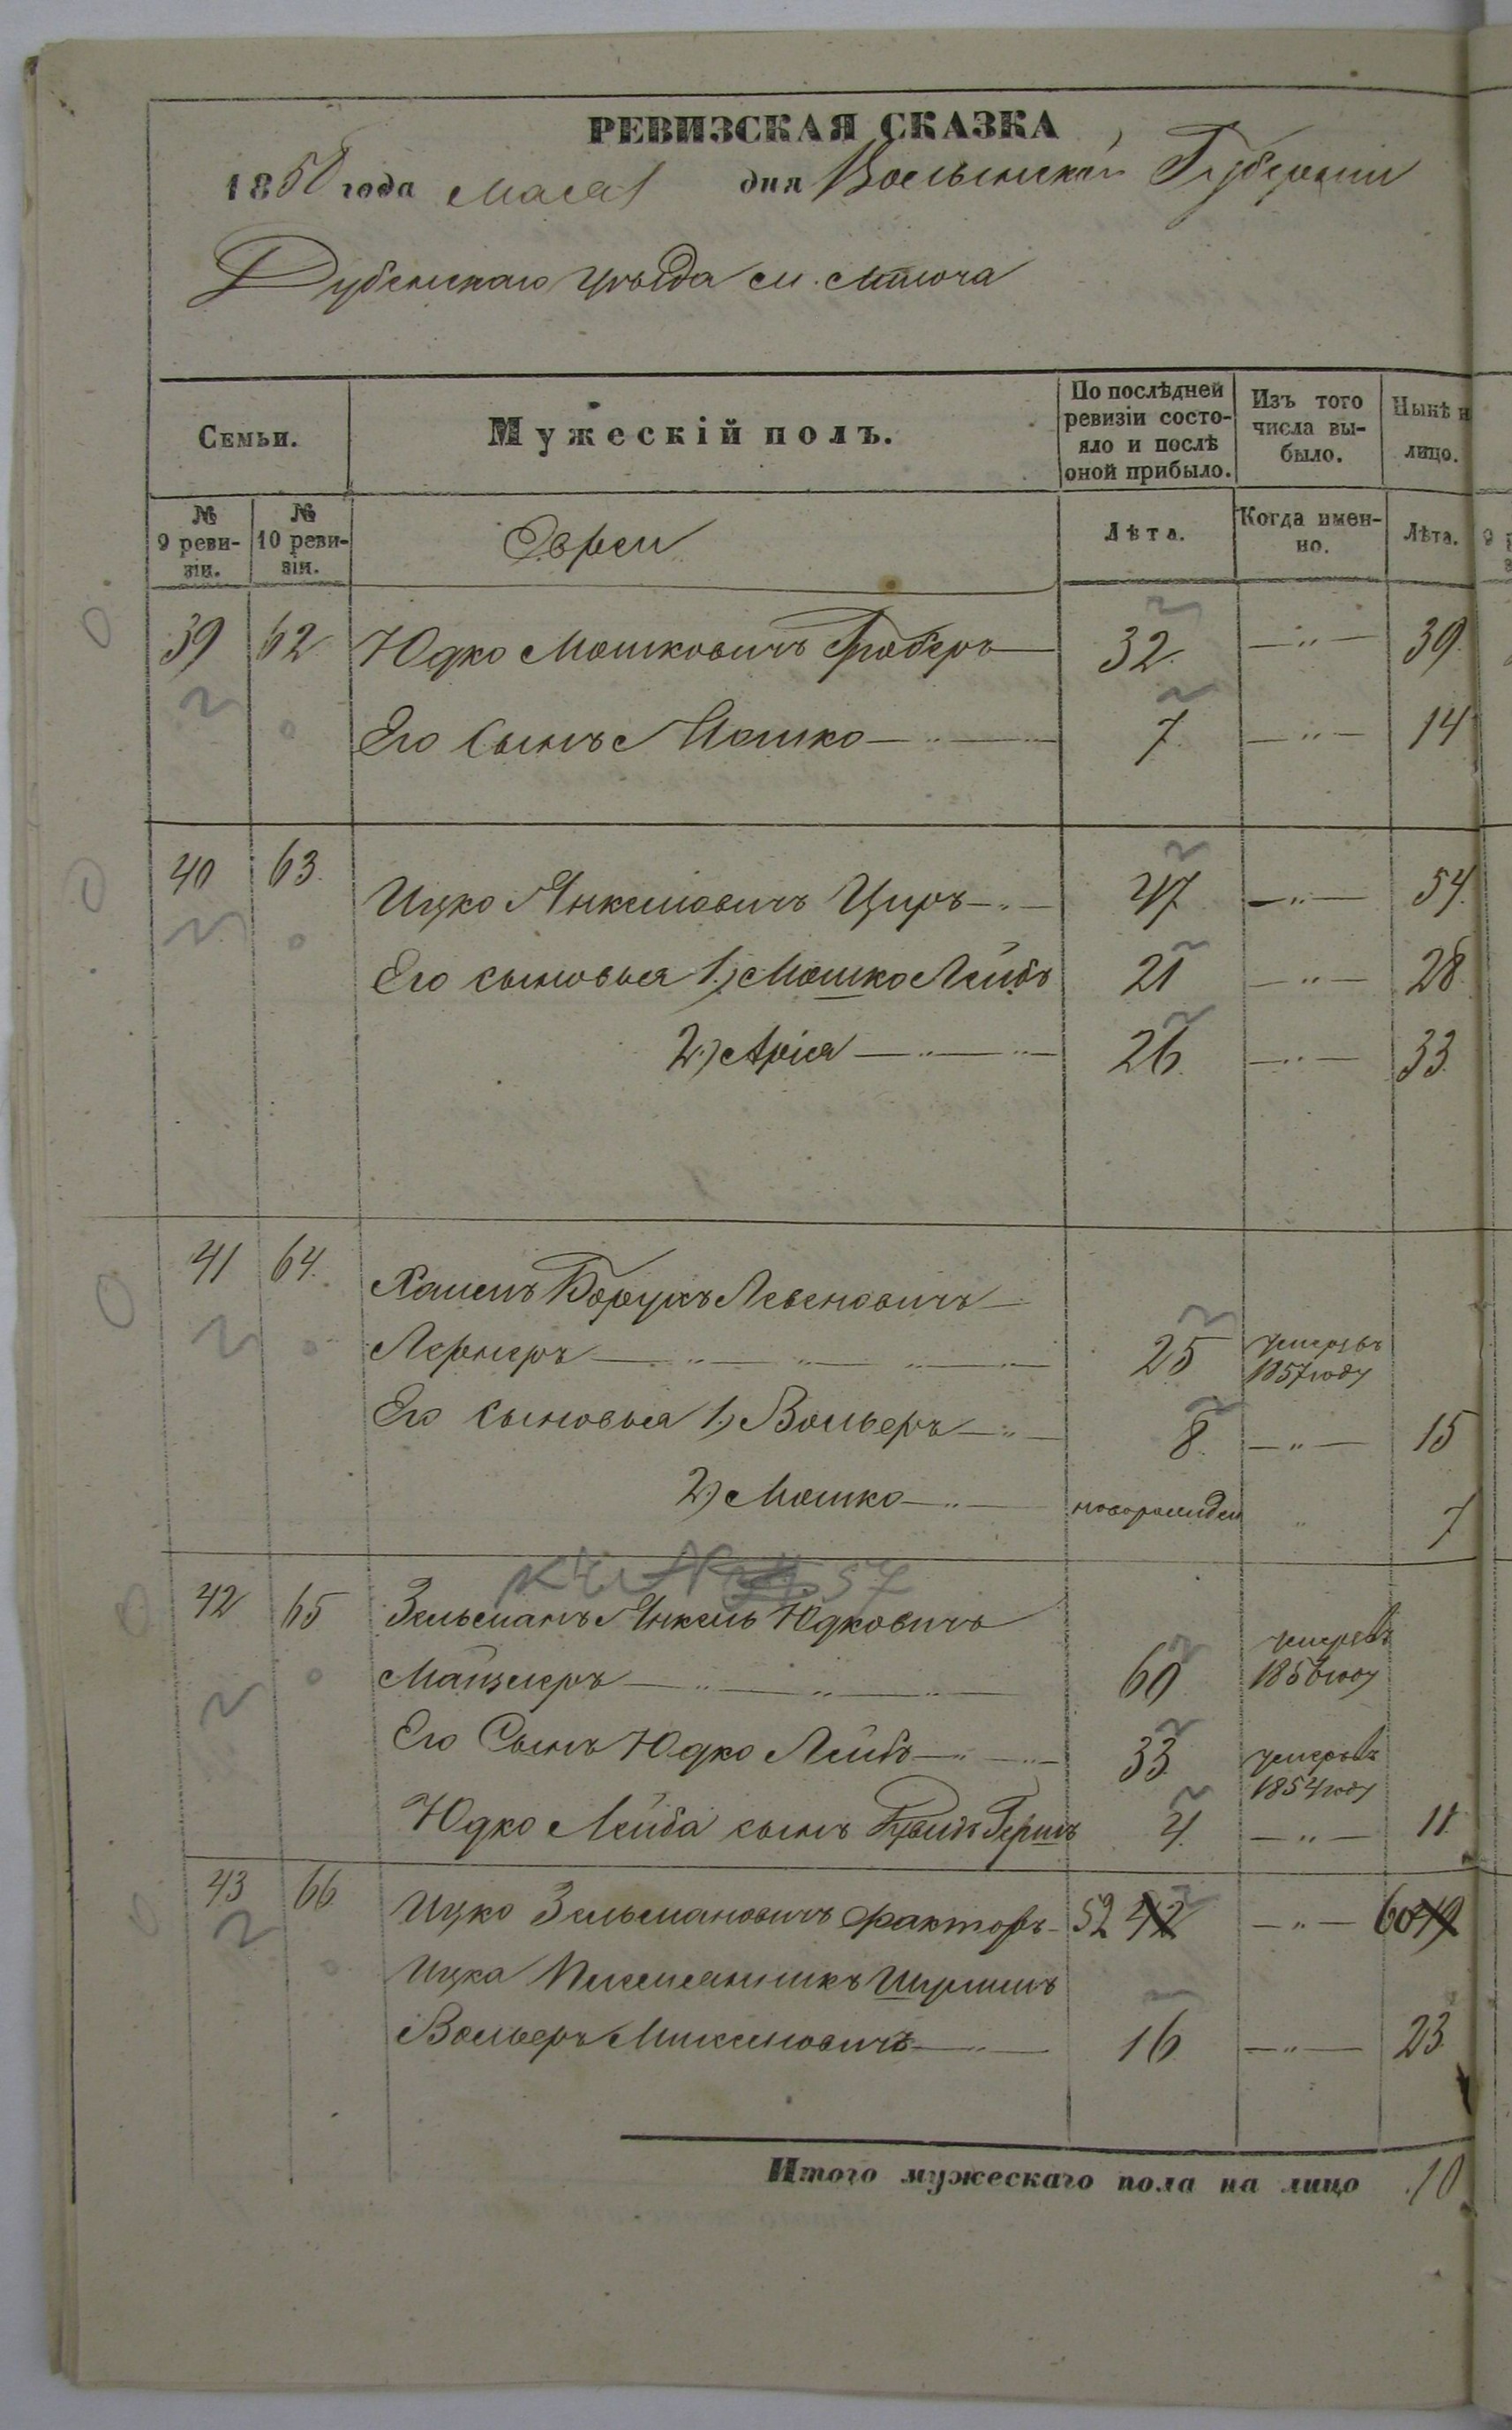 РЕВИЗСКАЯ СКАЗКА
1858 года мая дня Волынской Губерніи
Дубенскаго уѣзда м. Млынова
Семьи.
Мужескій полъ.
По послѣдней ревизіи состо-
яло и послѣ оной прибыло.
Изъ того числа вы-
было.
Нынѣ н
лицо.
№ 9 реви-
зіи.
№ 10 реви-
зіи.
Евреи
Лѣта.
Когда имен-
но.
Лѣта.
39 62 Юдко Мошковичъ Гробер 32. —„— 39.
Его Сынъ Мошко —„— 7. —„— 14
40 63. Ицко Янкелевичъ Циръ —„— 47 —„— 54.
Его сыновья 1.) Мошко Лейбъ 21 —„— 28.
2.) Арія —„— 26. —„— 33.
41 64. Хаимъ Борухъ Левековичъ —
Лернеръ —„— 25 умеръ въ
1857 году
Его сыновья 1.) Вольвръ —„— 8. —„— 15
2.) Мошко —„— новорожден „ 7
57
42 65 Зельманъ Янкель Юдковичъ
Майзлеръ —„— 60 умеръ въ
1856 году
Его Сынъ Юдко Лейбъ —„— 33. умеръ въ
1854 году
Юдко Лейба сынъ Гершъ 4. —„— 11.
43 66 Ицко Зельмановичъ Факторъ 52 42 —„— 60 49
Ицка Племянникъ
Вольвръ —„— 16 —„— 23.
Итого мужескаго пола на лицо 10